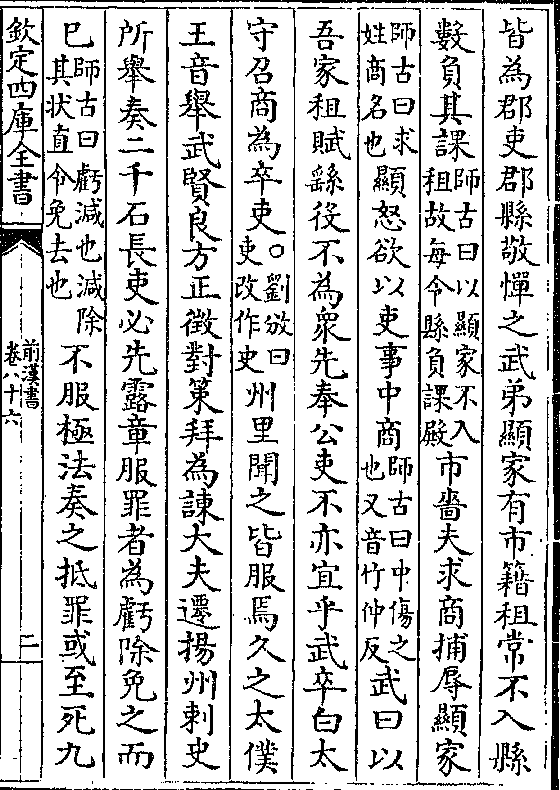 皆為郡吏郡縣敬憚之武弟顯家有市籍租常不入縣
數負其課師古曰以顯家不入租故每令縣負課殿市嗇夫求商捕辱顯家
師古曰求姓商名也顯怒欲以吏事中商師古曰中傷之也又音竹仲反武曰以
吾家租賦繇役不為衆先奉公吏不亦宜乎武卒白太
守召商為卒吏〇劉攽曰吏改作史州里聞之皆服焉久之太僕
王音舉武賢良方正徵對策拜為諫大夫遷揚州刺史
所舉奏二千石長吏必先露章服罪者為虧除免之而
已師古曰虧減也減除其狀直令免去也不服極法奏之抵罪或至死九
欽定四庫全書
前漢書
卷八十六
二